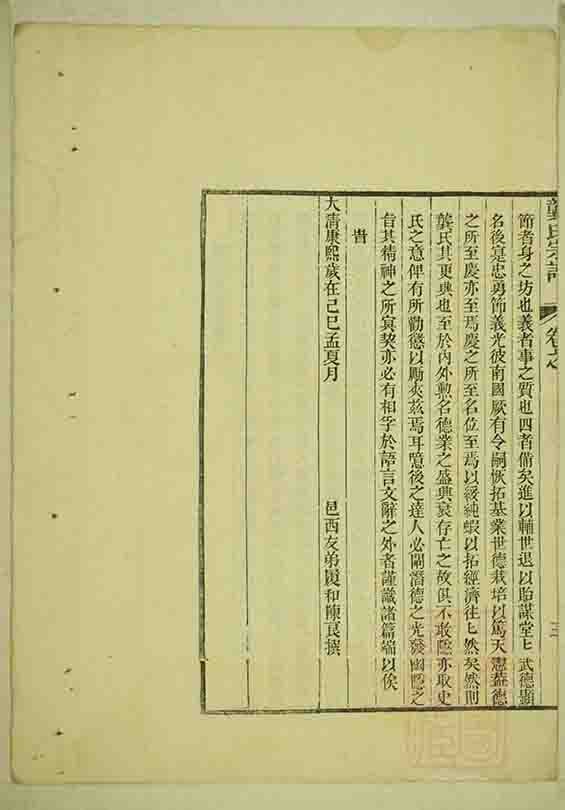 龔氏宗譜
卷之
三
節者身之坊也義者事之質也四者備矣進以輔世退以貽謀堂匕武德顯
名後寔忠勇節義光彼南國厥有令嗣恢拓基業世德栽培以篤天憲蓋德
之所至慶亦至焉慶之所至名位至焉以綏純蝦以拓經濟往匕然矣然則
龔氏其更興也至於內外勲名德業之盛興衰存亡之故俱不敢隱亦取史
氏之意俾有所勸懲以勵夾茲焉耳噫後之達人必闡潛德之光發幽隱之
旨其精神之所㝠契亦必有相孚於語言文辭之外者謹識諸篇端以俟
旹
大清康熙歲在己巳孟夏月
邑西友弟履和陳良撰